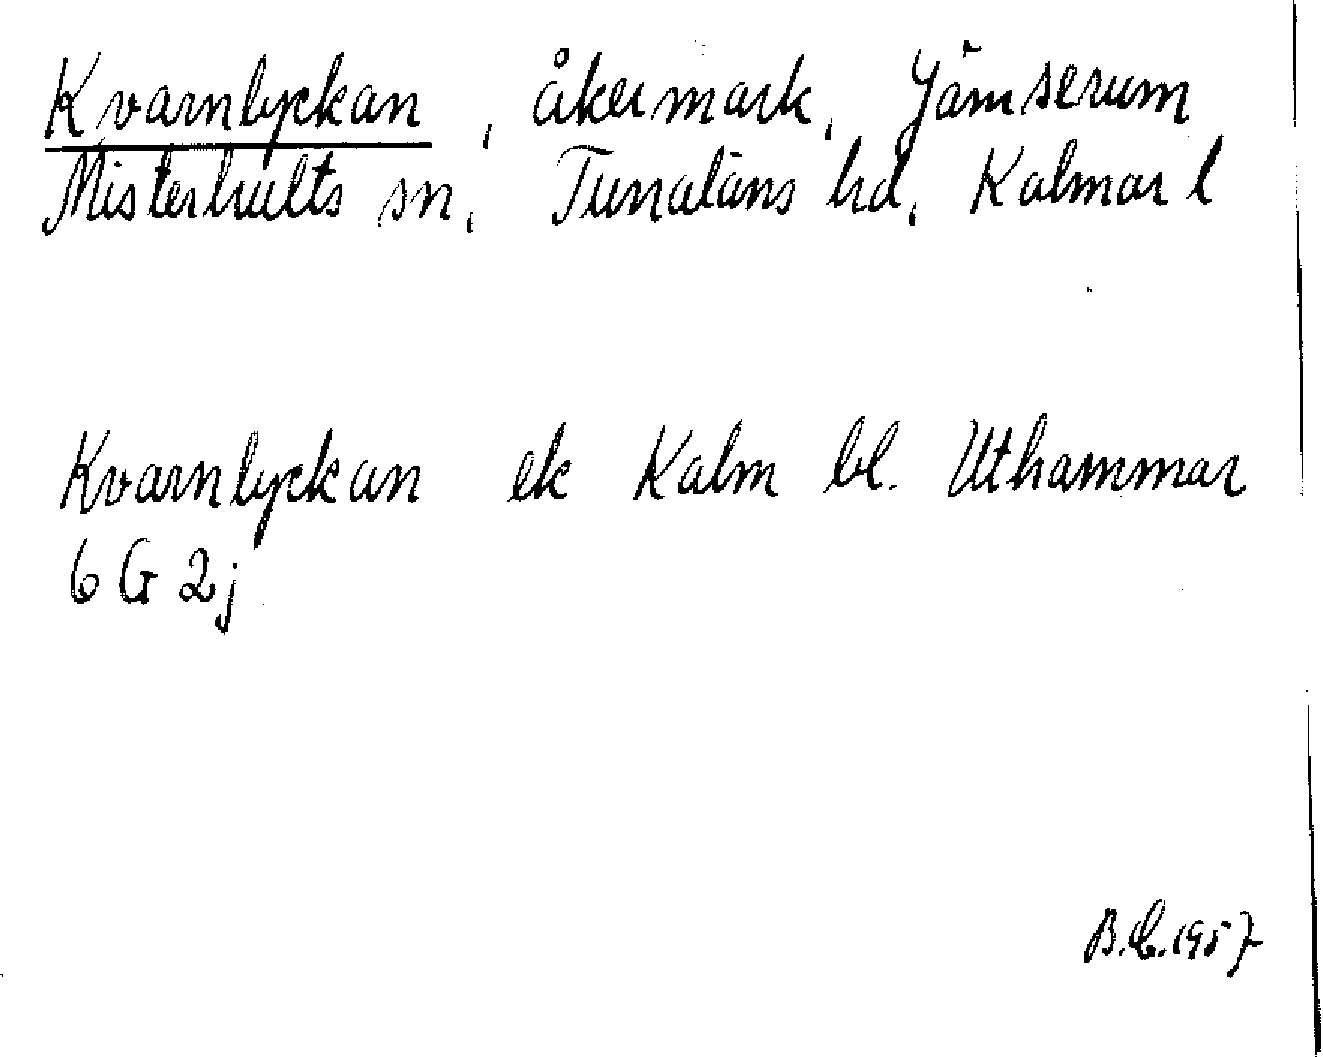 Kvarnlyckan, åkermark, Jämserum
Misterhults sn, Tunaläns hd, Kalmar l
Kvarnlyckan ek Kalm bl. Uthammar
6 G 2j
1957